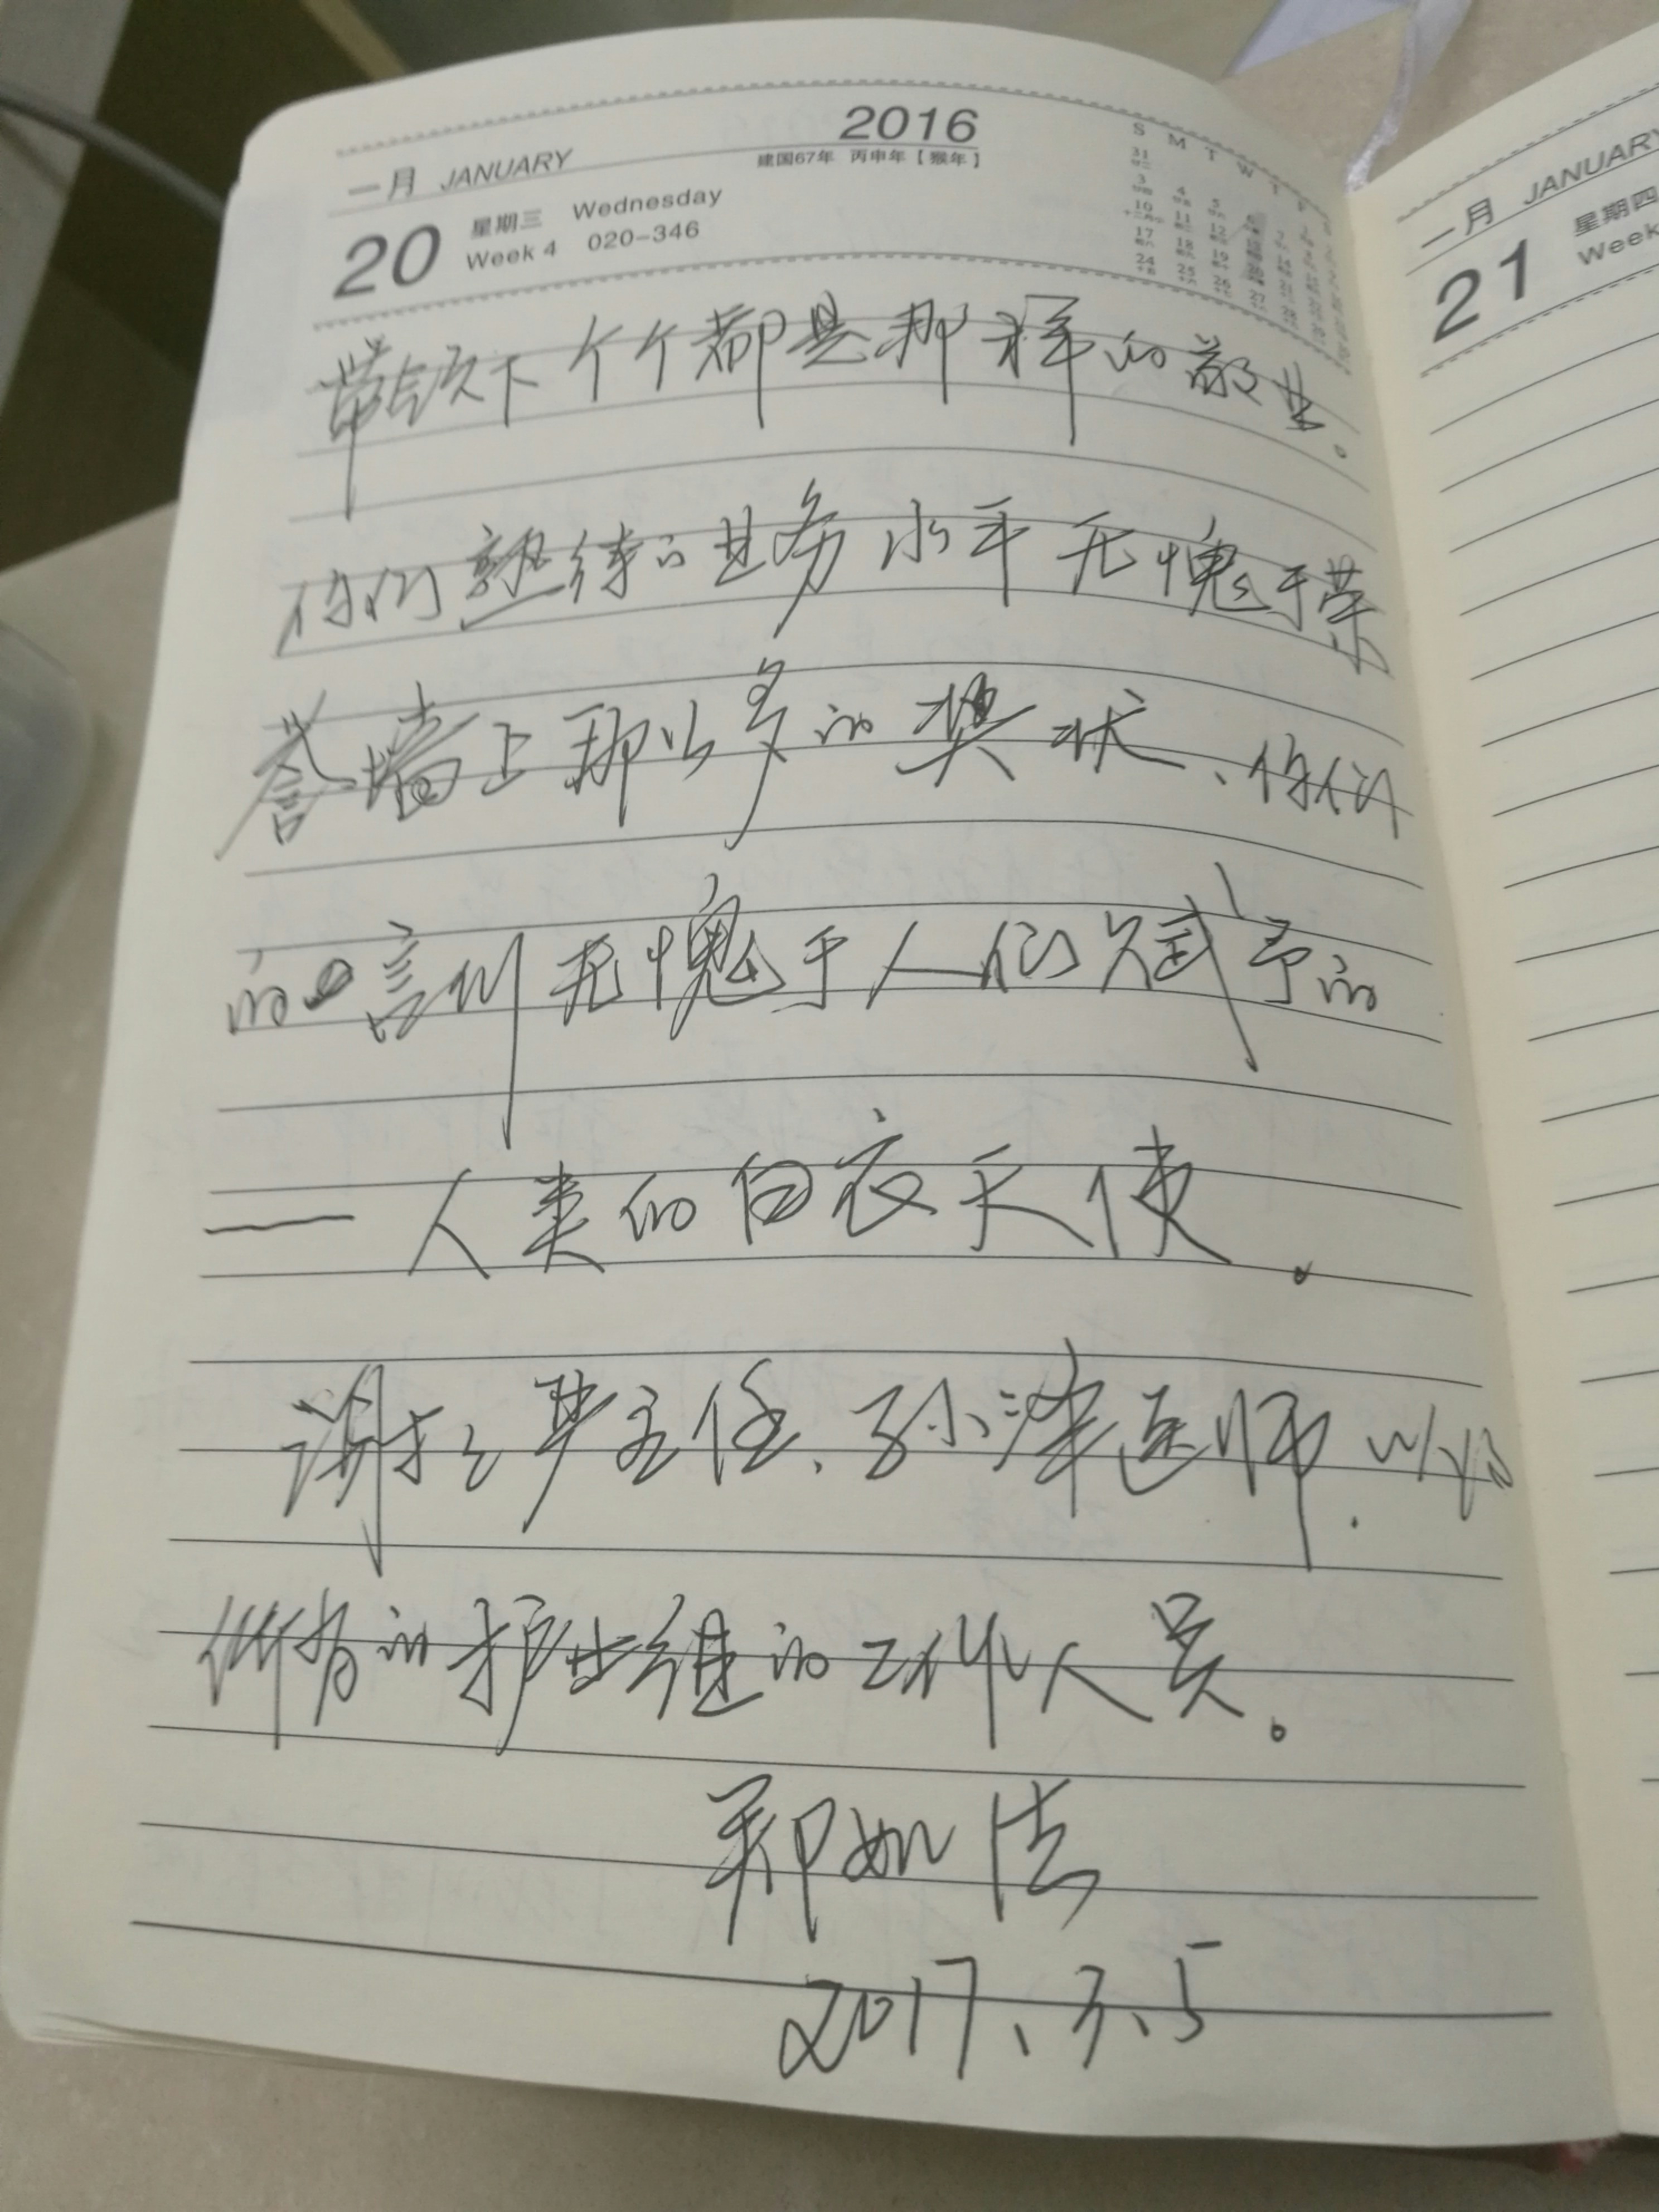 2016
建国67年 丙申年【猴年】
一月 JANUARY
20 星期三 Wednesday
Week 4 020-346
S M T W T F
31
3 4 5 6 7
10 11 12 13 14
17 18 19 20 21
24 25 26 27 28
带领下个个都是那样的敬业。
你们熟练的业务水平无愧于荣
誉墙上那么多的奖状、你们
的言行无愧于人们赋予的
——人类的白衣天使。
谢谢严主任、孙泽医师.以及
所有的护士组的工作人员。
郑如法
2017、3、5
一月 JANUARY
21 星期四
Week